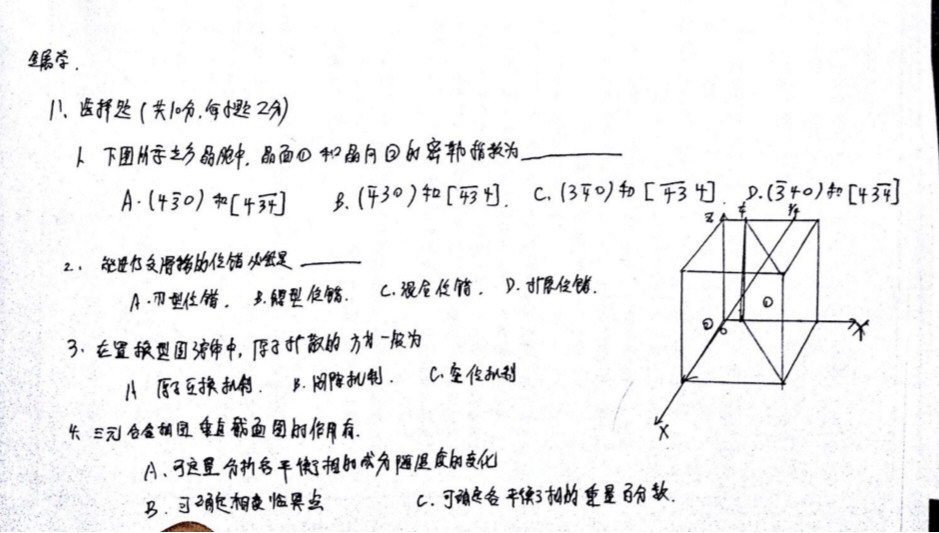 金属学.
1、选择题(共10分,每小题2分)
1. 下图所示立方晶胞中,晶面① 和晶向②的密勒指数为
A.(43̅0)和[43̅4̅] B.(4̅30)和[4̅3̅4]. C.(34̅0)和[4̅3̅4]. D.(3̅40)和[43̅4̅]
Z
2. 能进行交滑移的位错必然是
A.刃型位错. B.螺型位错. C.混合位错. D.扩展位错.
① ②
Y
3. 在置换型固溶体中,原子扩散的方式一般为
A 原子互换机制. B.间隙机制. C.空位机制
X
4. 三元合金相图垂直截面图的作用有.
A、可定量分析各平衡相的成分随温度的变化
B. 可确定相变临界点 C. 可确定各平衡相的重量百分数.